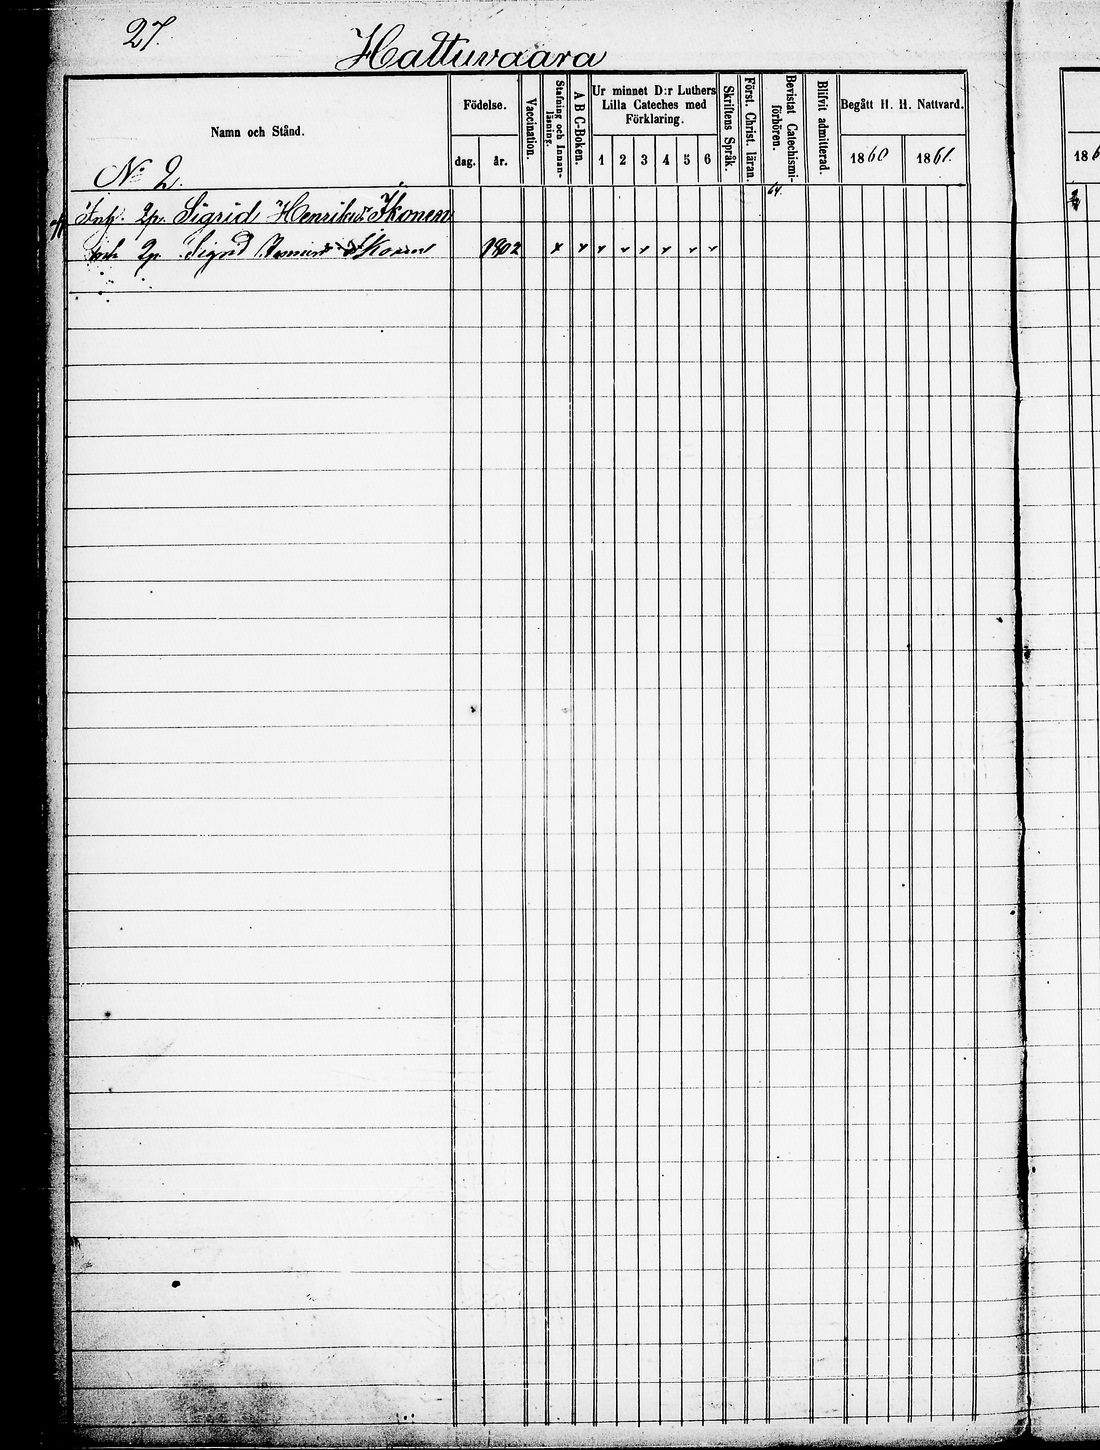 27.
Hattuvaara
Namn och Stånd.
Födelse.
dag.
år.
Vaccination.
Stafning och Innan-
läsning.
A B C-Boken.
Ur minnet D:r Luthers
Lilla Cateches med
Förklaring.
1 2 3 4 5 6
Skriftens Språk.
Först. Christ. läran.
Bevistat Catechismi-
förhören.
Blifvit admitterad.
Begått H. H. Nattvard.
1860 1861.
186
No 2.
64.
Inh. Sigrid Henriksd:r Ikonen
Sigrid Ikonen 1802